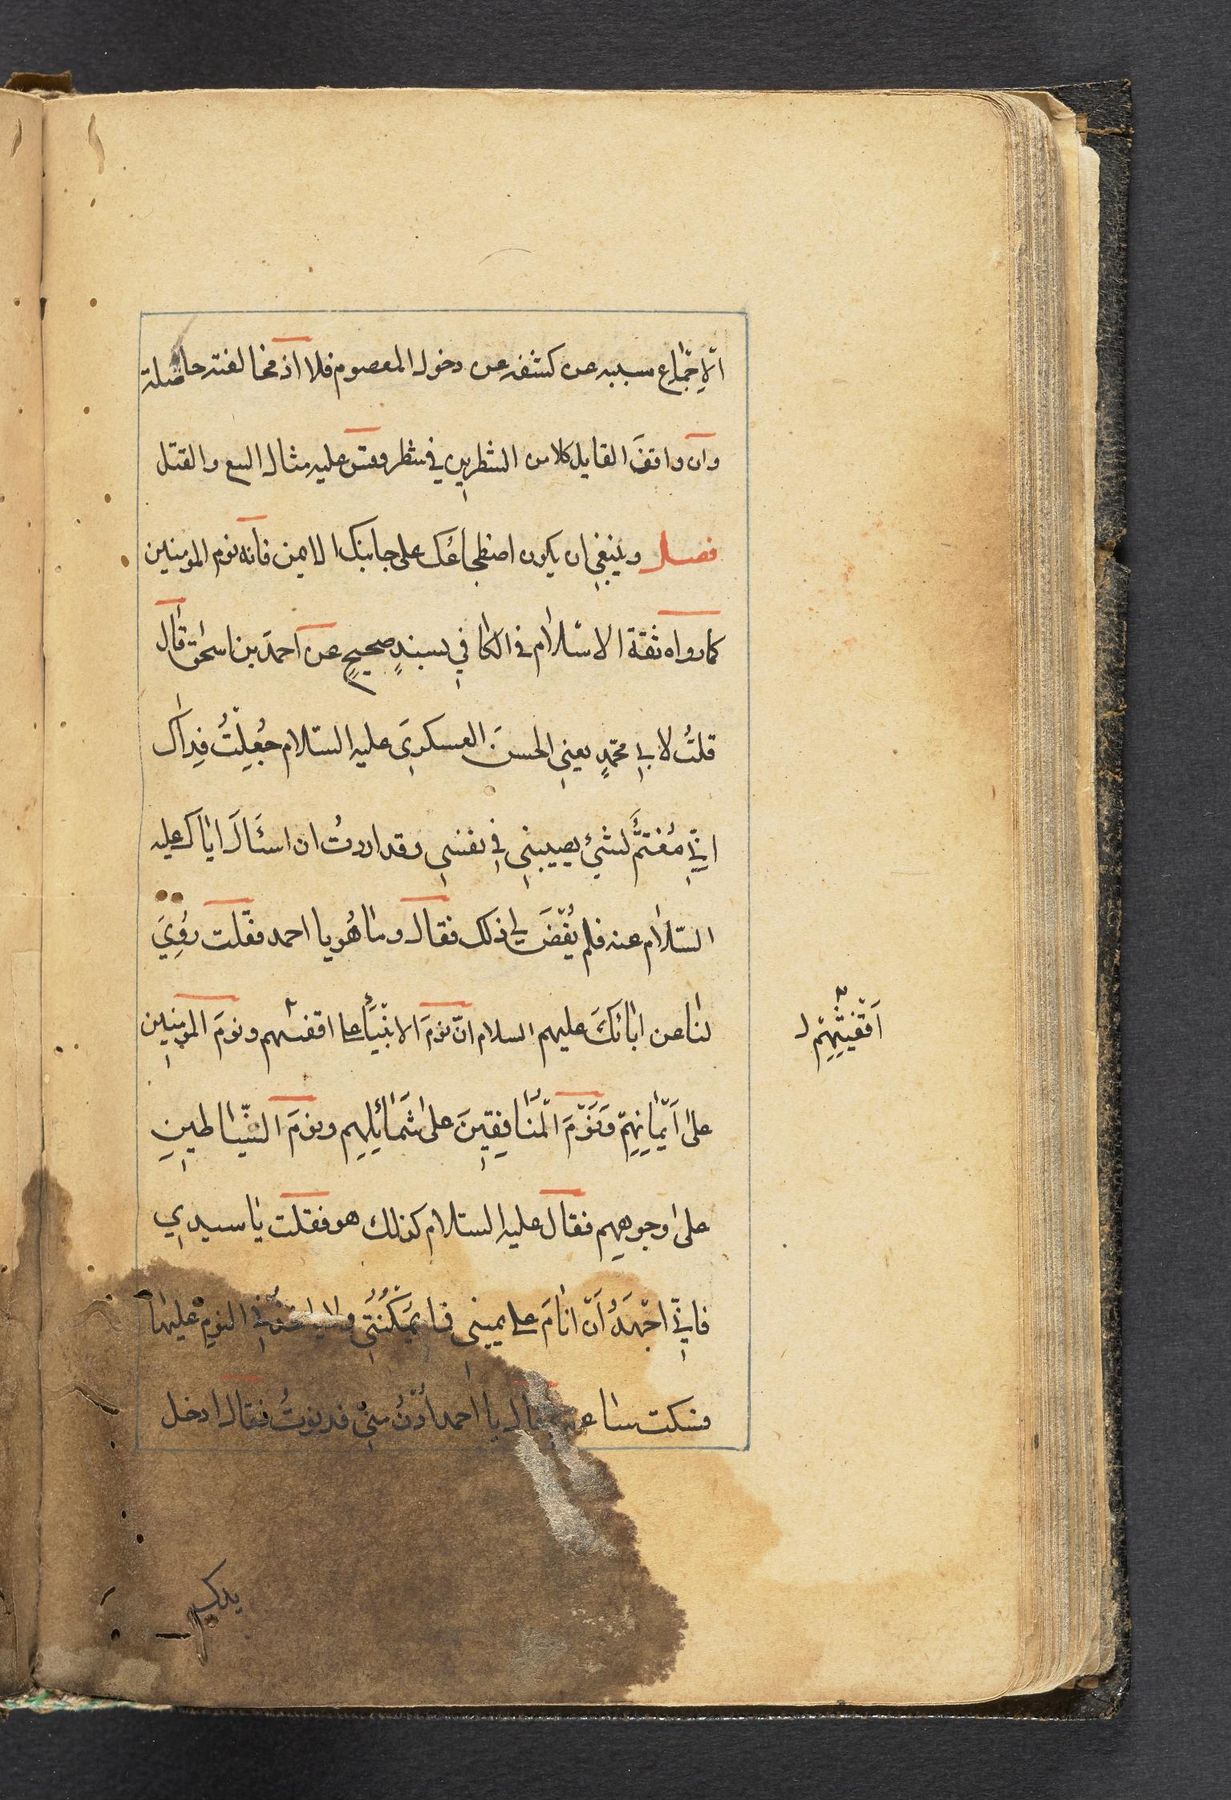 الاِجمَاع سببه عن كشفه عن دخول المعصوم فلا اذ مخالفته حاصلة
وان وافقَ القايل كلا من الشطرين في شطر وقس عليه مثال البيع والقتل
فصل وينبغي ان يكون اضطجاعُك على جانبك الايمن فانه نوم المومنين
كما رواه ثقة الاسلام في الكافي بسندٍ صحيحٍ عن احمدَ بن اسحٰق قال
قلتُ لابي محمّدٍ يعني الحسنَ العسكريَ عليه السّلام جُعِلْتُ فِداك
انيِّ مُغتمٌّ لشيءٍ يصيبني في نفسي وقد اردتُ ان اسئَالَ اباك عليه
السّلام عنه فلم يُقْضَ لي ذلك فقال وما هُو يا احمد فقلت رُوِيَ
لنا عن ابائكَ عليهم السلام انّ نومَ الانبيَاءِ على اقفيتهم ونومَ المومنين
على اَيْمانِهِمْ وَنَوْمَ الْمُنَافِقِينَ على شَمائِلِهِم ونومَ الشّياطينِ
على وجوههم فقال عليه السلام كذلك هو فقلت يا سيدي
فاِنيّ اجْهَدُ اَنْ انامَ على يميني فما يُمْكِنُنيِ ولا ياخذُني النومُ عليها
فسكت ساعة فقال يا احمد اُدْنُ مِنيِّ فدنوتُ فقال ادخل
اَقْفِيَتِهِمْ
يدك